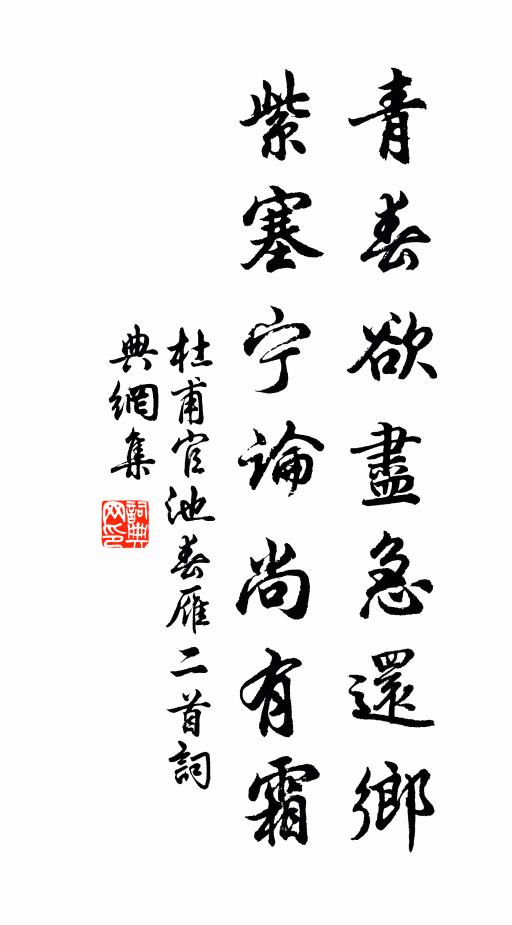 青春欲盡急還鄉
紫塞宁論尚有霜
杜甫官池春雁二首詞
典網集
詞典网印